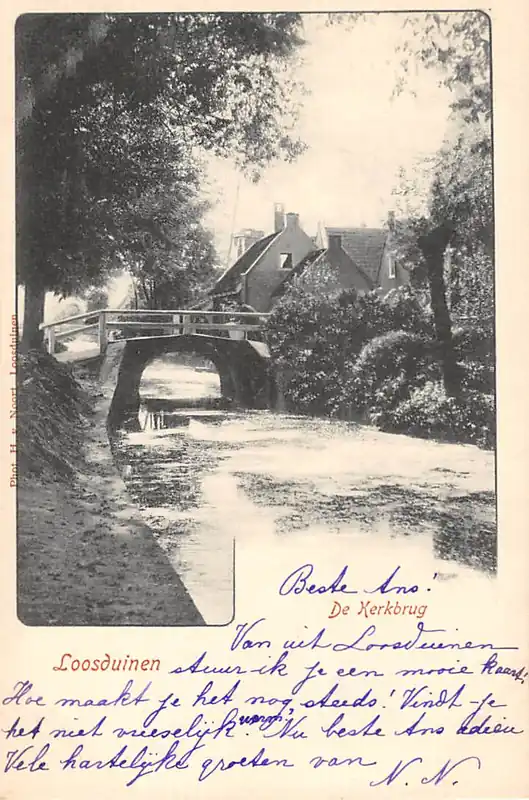 Phot. H. v. Noort, Loosduinen
Beste Ans!
De Kerkbrug
Van uit Loosduinen
Loosduinen
stuur ik je een mooie kaart!
Hoe maakt je het nog steeds! Vindt je
het niet vreeselijk warm, Nu beste Ans adieu
Vele hartelijke groeten van
N. N.